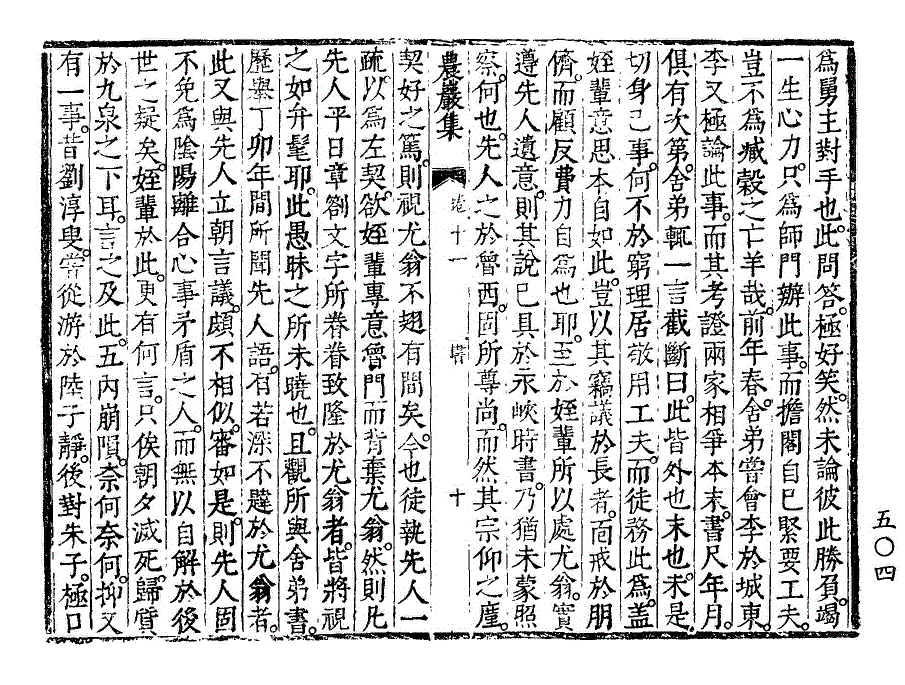 爲舅主對手也。此問答。極好笑。然未論彼此勝負。竭
一生心力。只爲師門辦此事。而擔閣自己緊要工夫。
豈不爲臧糓之亡羊哉。前年春。舍弟嘗會李於城東。
李又極論此事。而其考證兩家相爭本末。書尺年月。
俱有次第。舍弟輒一言截斷曰。此皆外也末也。未是
切身己事。何不於窮理居敬用工夫。而徒務此爲。盖
姪輩意思本自如此。豈以其竊議於長者。而戒於朋
儕。而顧反費力自爲也耶。至於姪輩所以處尤翁。實
遵先人遺意。則其說已具於永峽時書。乃猶未蒙照
察。何也。先人之於魯西。固所尊尚。而然其宗仰之塵
農巖集 卷十一 書 十
契好之篤。則視尤翁不翅有間矣。今也徒執先人一
疏。以爲左契。欲姪輩專意魯門而背棄尤翁。然則凡
先人平日章劄文字所眷眷致隆於尤翁者。皆將視
之如弁髦耶。此愚昧之所未曉也。且觀所與舍弟書。
歷擧丁卯年間所聞先人語。有若深不韙於尤翁者。
此又與先人立朝言議。頗不相似。審如是。則先人固
不免爲陰陽離合心事矛盾之人。而無以自解於後
世之疑矣。姪輩於此。更有何言。只俟朝夕滅死。歸質
於九泉之下耳。言之及此。五內崩隕。奈何奈何。抑又
有一事。昔劉淳叟。嘗從游於陸子靜。後對朱子。極口
五〇四